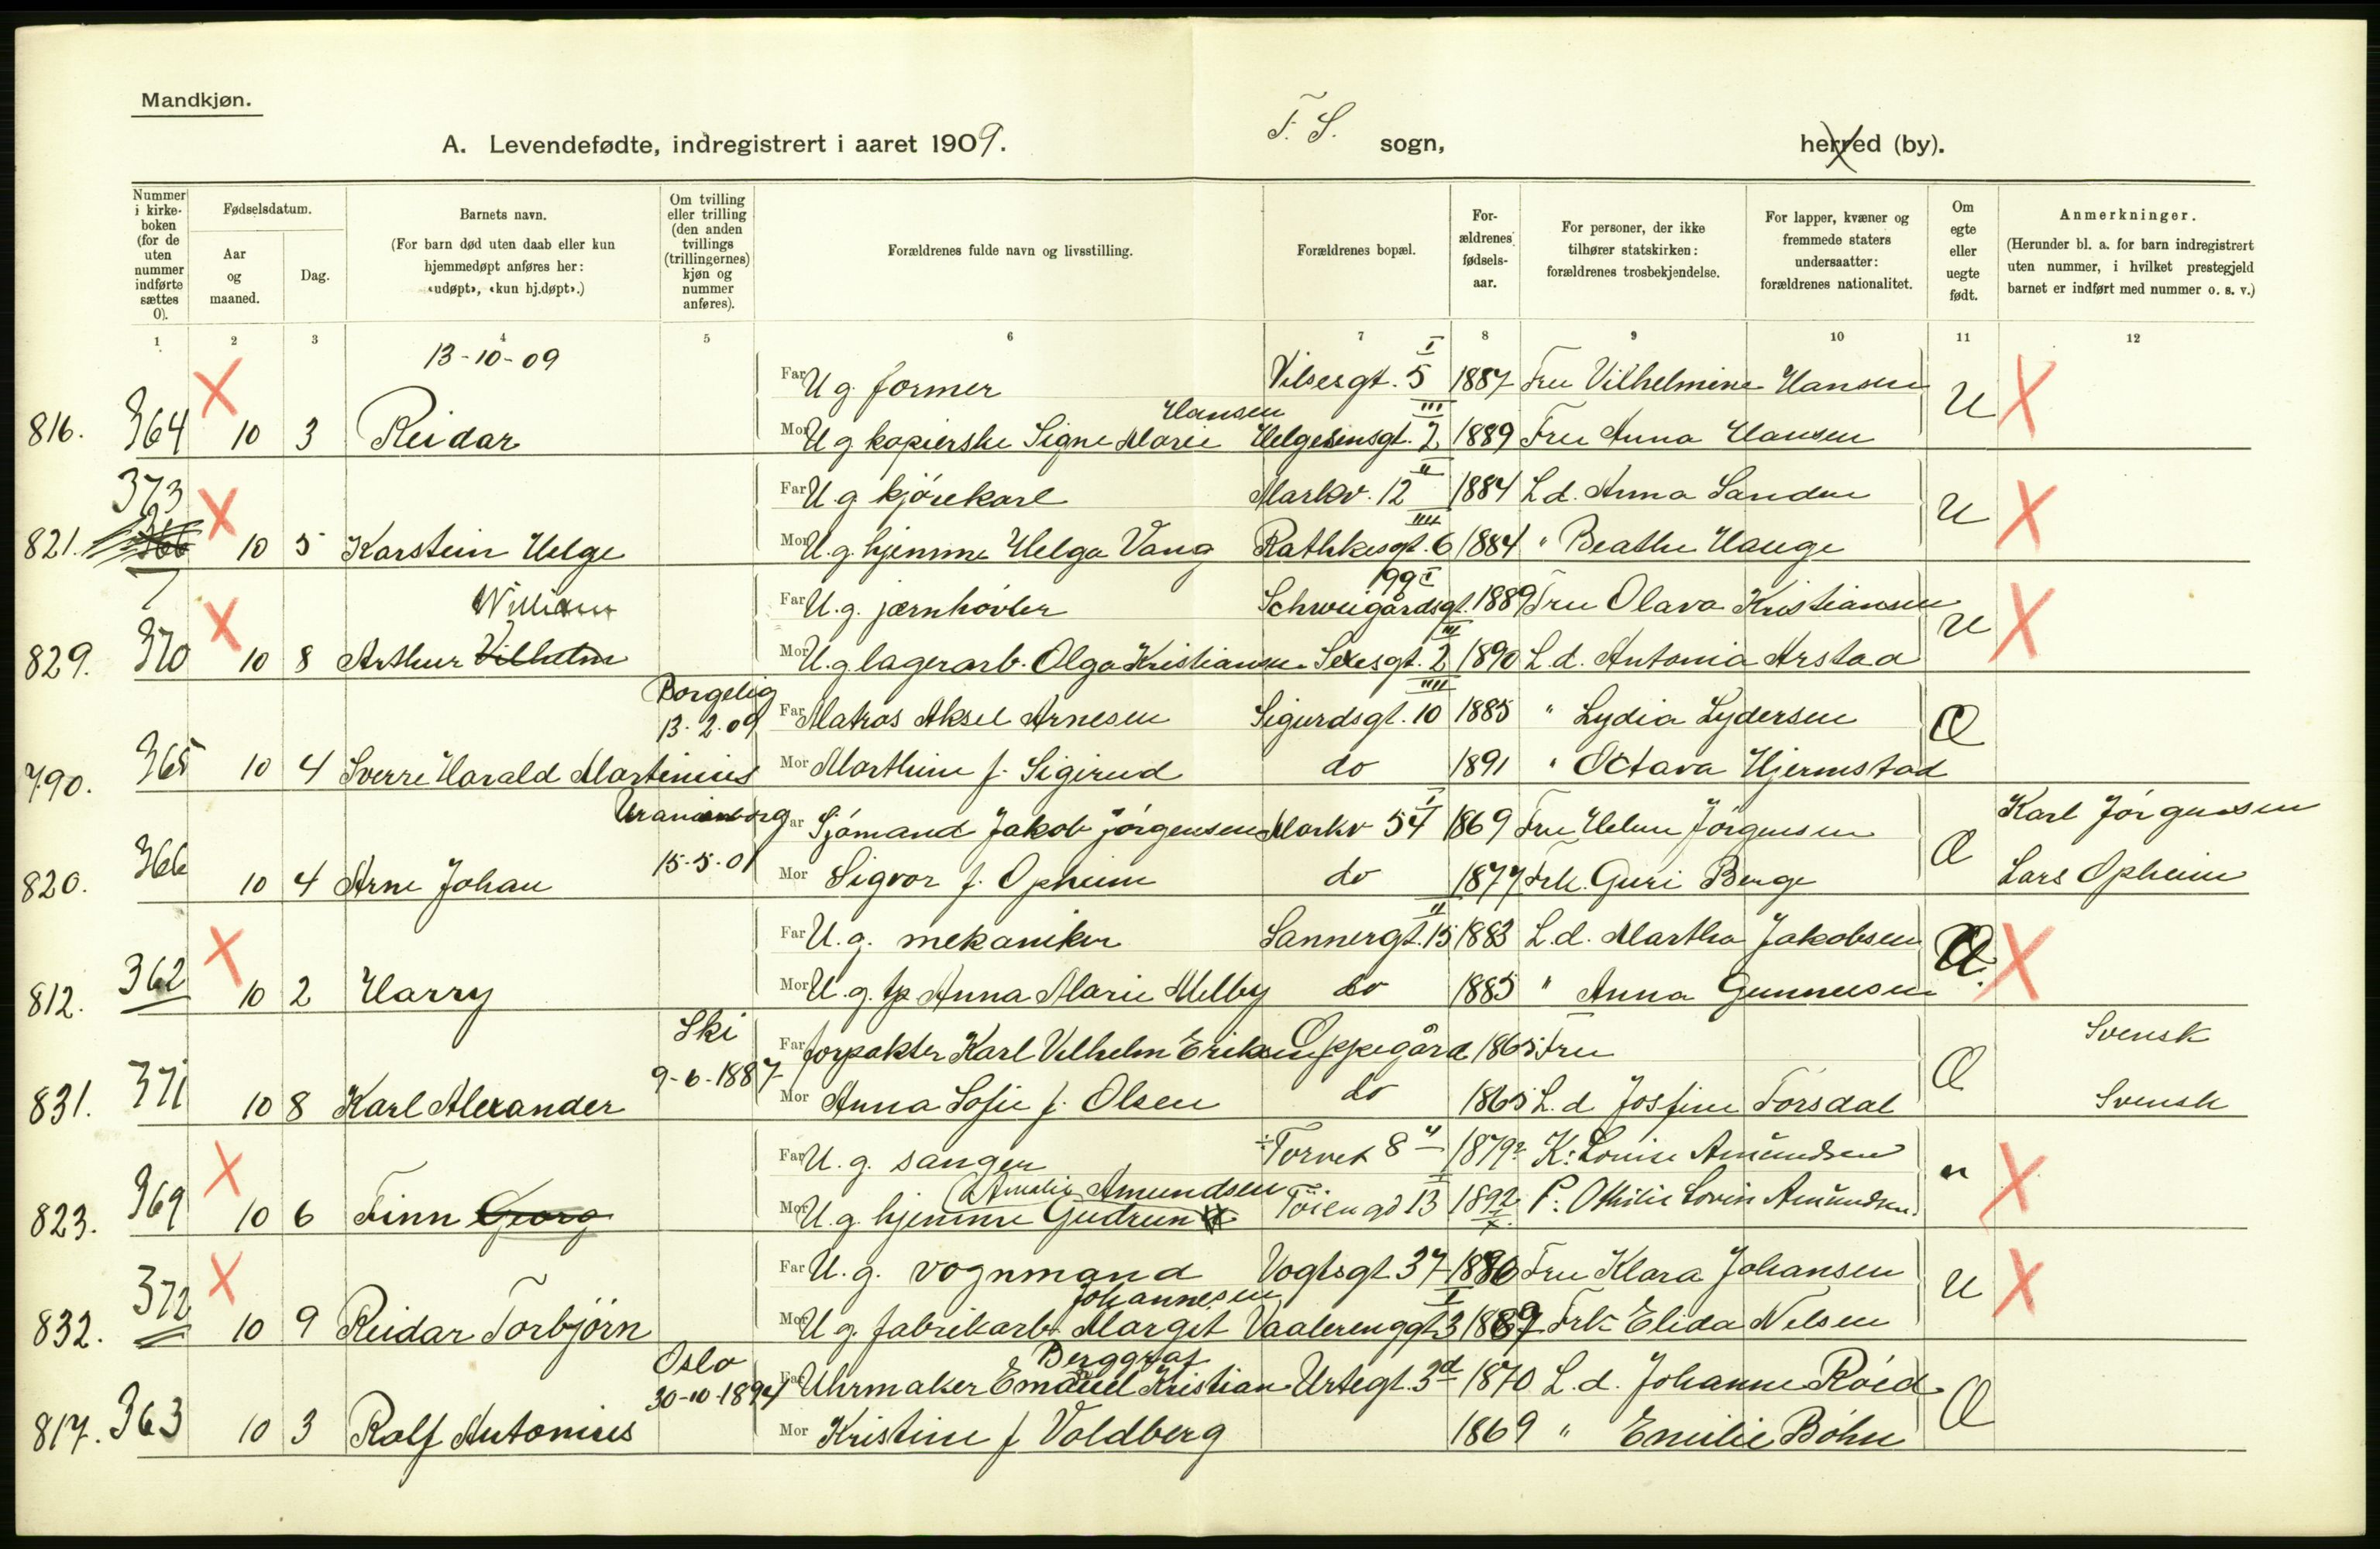 Mandkjøn.
A. Levendefødte, indregistrert i aaret 1909. F. S. sogn, herred (by).
Nummer i kirkeboken (for de uten nummer indførte sættes 0).
Fødselsdatum.
Aar og maaned.
Dag.
Barnets navn.
(For barn død uten daab eller kun hjemmedøpt anføres her: «udøpt», «kun hj.døpt».)
Om tvilling eller trilling (den anden tvillings (trillingernes) kjøn og nummer anføres).
Forældrenes fulde navn og livsstilling.
Forældrenes bopæl.
Forældrenes fødselsaar.
For personer, der ikke tilhører statskirken: forældrenes trosbekjendelse.
For lapper, kvæner og fremmede staters undersaatter: forældrenes nationalitet.
Om egte eller uegte født.
Anmerkninger.
(Herunder bl. a. for barn indregistrert uten nummer, i hvilket prestegjeld barnet er indført med nummer o. s. v.)
1 2 3 4 5 6 7 8 9 10 11 12
13-10-09
Far U g. former Vilsesgt. 5 I 1887 Fru Vilhelmine Hansen
816. 364 10 3 Reidar Mor U g kopierske Signe Marie Hansen Helgesensgt. 2 III 1889 Fru Anna Hansen U
373 Far U. g. kjørekarl Markv. 12 II 1884 L.d. Anna Sanden
821. 366 10 5 Karstein Helge Mor U. g. hjemme Helga Vang Rathkesgt. 6 IIII 1884 " Beathe Hauge U
William Far U. g. jernhøvler Schweigårdsgt. 99 I 1889 Fru Olava Kristiansen
829. 370 10 8 Arthur Vilhelm Mor U. g lagerarb. Olga Kristiansen Sexesgt. 2 III 1890 L.d. Antonia Arstad U
Borgelig 13-2-09 Far Matros Aksel Arnesen Sigurdsgt. 10 IIII 1885 " Lydia Lydersen
790. 365 10 4 Sverre Harald Martinius Mor Marthine f. Sigerud do 1891 " Octava Hjermstad Æ
Uranienborg Far Sjømand Jakob Jørgensen Markv 54 I 1869 Fru Helene Jørgensen Karl Jørgensen
820. 366 10 4 Arne Johan 15-5-01 Mor Sigvor f. Opheim do 1877 Frk. Guri Berge Æ Lars Opheim
Far U. g. mekaniker Sannergt. 15 II 1883 L.d. Martha Jakobsen
812. 362 10 2 Harry Mor U. g. tp Anna Marie Melby do 1885 " Anna Gunnersen U.
Ski Far forpakter Karl Vilhelm Eriksen Oppegård 1865 Fru Svensk
831. 371 10 8 Karl Alexander 9-6-1887 Mor Anna Sofie f. Olsen do 1865 L.d Josfine Torsdal Æ Svensk
Far U. g. sanger Torvet 8 II 1879? K: Louise Amundsen
823. 369 10 6 Finn Georg Mor U. g. hjemme Gudrun Amalie Amundsen Tøiengd 13 I 1892 P. Othilie Lovise Amundsen u
Far U. g. vognmand Vogtsgt 37 1886 Fru Klara Johansen
832. 372 10 9 Reidar Torbjørn Mor U g. fabrikarb Margit Johannesen Vaalerenggt 3 I 1889 Frk Elida Nilsen U
Oslo 30-10-1894 Far Uhrmaker Emanuel Kristian Berggraf Urtegt. 3d 1870 L.d. Johanne Røed
817. 363 10 3 Rolf Antonius Mor Kristine f Voldberg 1869 " Emilie Bøhn Æ